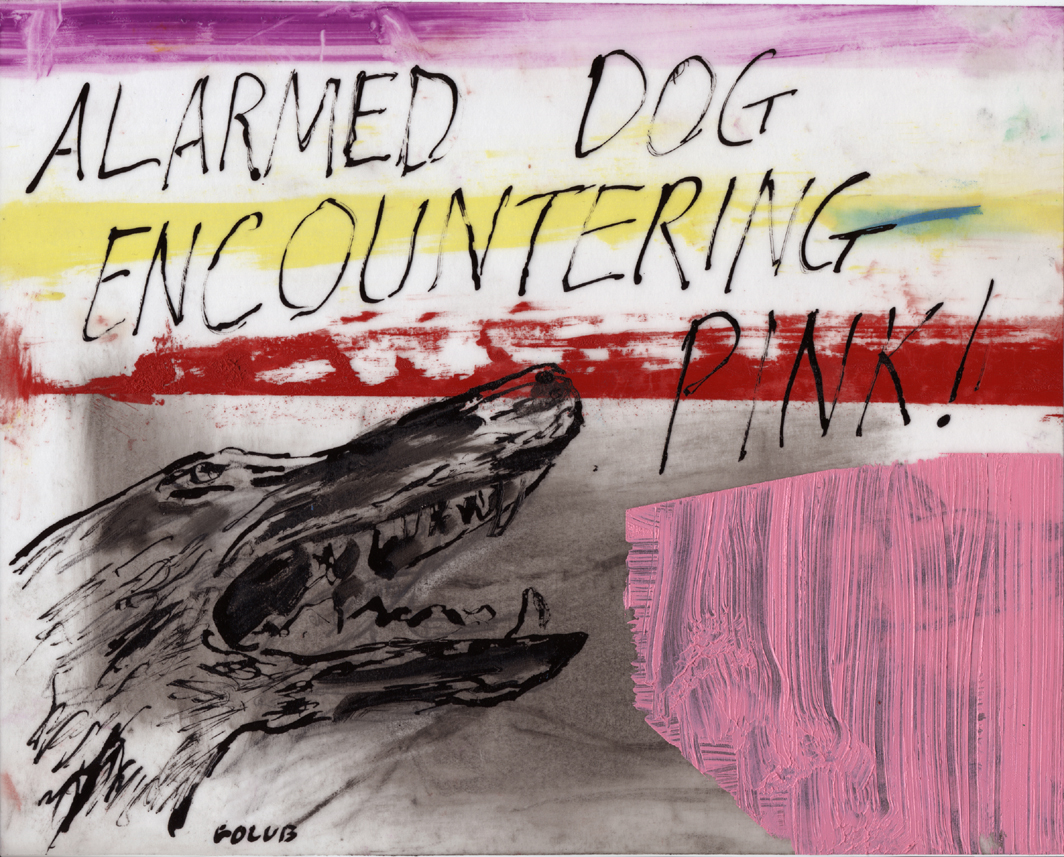 ALARMED DOG
ENCOUNTERING
PINK!
GOLUB